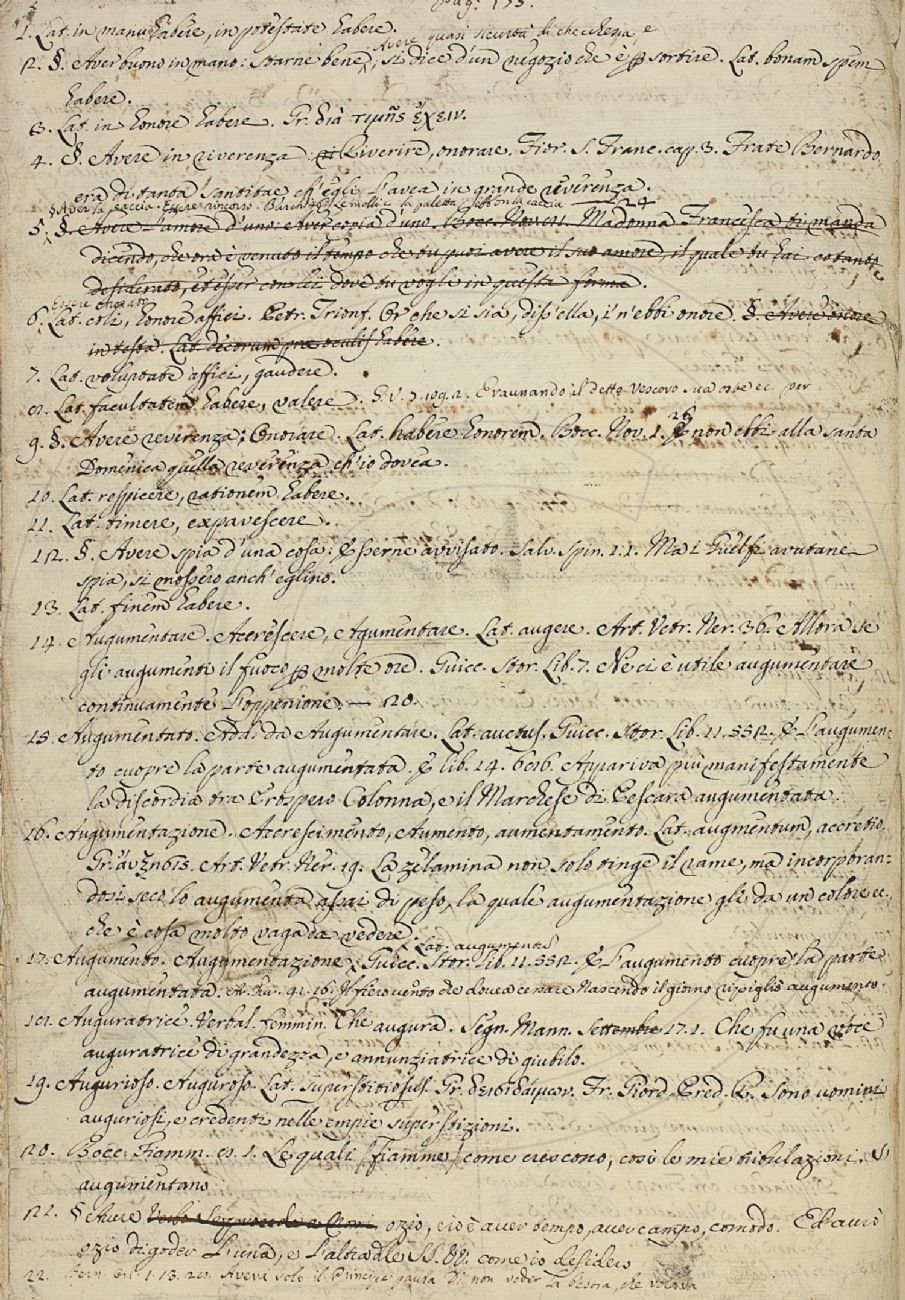 Pag. 175.
1. Lat. in manu habere, in potestate habere.
Avere quasi sicurtà di che che sia e
2. §. Aver buono in mano: starne bene, si dice d'un negozio che è p sortire. Lat. bonam spem
habere.
3. Lat. in honore habere. Gr. διὰ τιμῆς ἔχειν.
4. §. Avere in riverenza: Riverire, onorare. Fior. S. Franc. cap. 3. Frate Bernardo
era di tanta Santitae ch'egli l'avea in grande reverenza.
§ Aver la caccia. Essere rincorso. la galetta
5. §. Avere l'amore d'uno: aver copia d'uno. Bocc. Nov. Madonna Francesca ti manda
dicendo, che ora è venuto il tempo che tu puoi avere il suo amore, il quale tu hai cotanto
desiderato, et esser con lei dove tu vogli in questa forma.
Essere onorato
6. Lat. coli, honore affici. Petr. Trionf. Or che si sia, diss'ella, i' n'ebbi onore. §. Avere onore
in testa. Lat. decorum prae oculis habere.
7. Lat. voluptate affici, gaudere.
8. Lat. facultatem habere, valere. G. V. 7. 109. 2. E raunando il detto Vescovo sua oste ec. per
9. §. Avere reverenza: Onorare. Lat. habere honorem. Bocc. Nov. 1. 26 E non ebbi alla santa
Domenica quella reverenza ch'io dovea.
10. Lat. respicere, rationem habere.
11. Lat. timere, expavescere.
12. §. Avere spia d'una cosa: Esserne avvisato. Salv. Spin. 1.1. Ma i Guelfi avutane
spia, si mossero anch'eglino.
13. Lat. finem habere.
14. Augumentare. Accrescere, Agumentare. Lat. augere. Art. Vetr. Ner. 36. Allora se
gli augumenti il fuoco p molte ore. Guicc. Stor. Lib. 7. Ne ci è utile augumentare
continuamente l'oppenione. — 20.
15. Augumentato. Add. da Augumentare. Lat. auctus. Guicc. Stor. Lib. 11. 552. E l'augumen-
to cuopre la parte augumentata. E lib. 14. 686. Appariva più manifestamente
la discordia tra Prospero Colonna, e il Marchese di Pescara augumentata.
16. Augumentazione. Accrescimento, Aumento, aumentamento. Lat. augmentum, accretio.
Gr. αὔξησις. Art. Vetr. Ner. 19. La zelamina non solo tinge il rame, ma incorporan-
dosi seco, lo augumenta assai di peso, la quale augumentazione gli da un colore ec.
che è cosa molto vaga da vedere.
Lat. augumentus
17. Augumento. Augumentazione. Guicc. Stor. Lib. 11. 552. E l'augumento cuopre la parte
augumentata. 41. 16. Il fiero vento che dovea cessare Nascendo il giorno ripigliò augumento.
18. Auguratrice. Verbal. femmin. Che augura. Segn. Mann. Settembre 17. 1. Che fu una voce
auguratrice di grandezza, e annunziatrice di giubilo.
19. Augurioso. Auguroso. Lat. superstitiosus. Gr. δεισιδαίμων. Fr. Giord. Pred. R. Sono uomini
auguriosi, e credenti nelle empie superstizioni.
20. Bocc. Fiamm. 8. 1. Le quali (fiamme) come crescono, così le mie tribulazioni S'
augumentano
21. § Avere ozio, cioè aver tempo, aver campo, comodo. Ed avrò
ozio di goder l'una, e l'altra delle SS. VV. come io desidero
22. Bern. Orl. 1. 13. 20. Aveva solo il Principe paura Di non veder la bestia, che volava